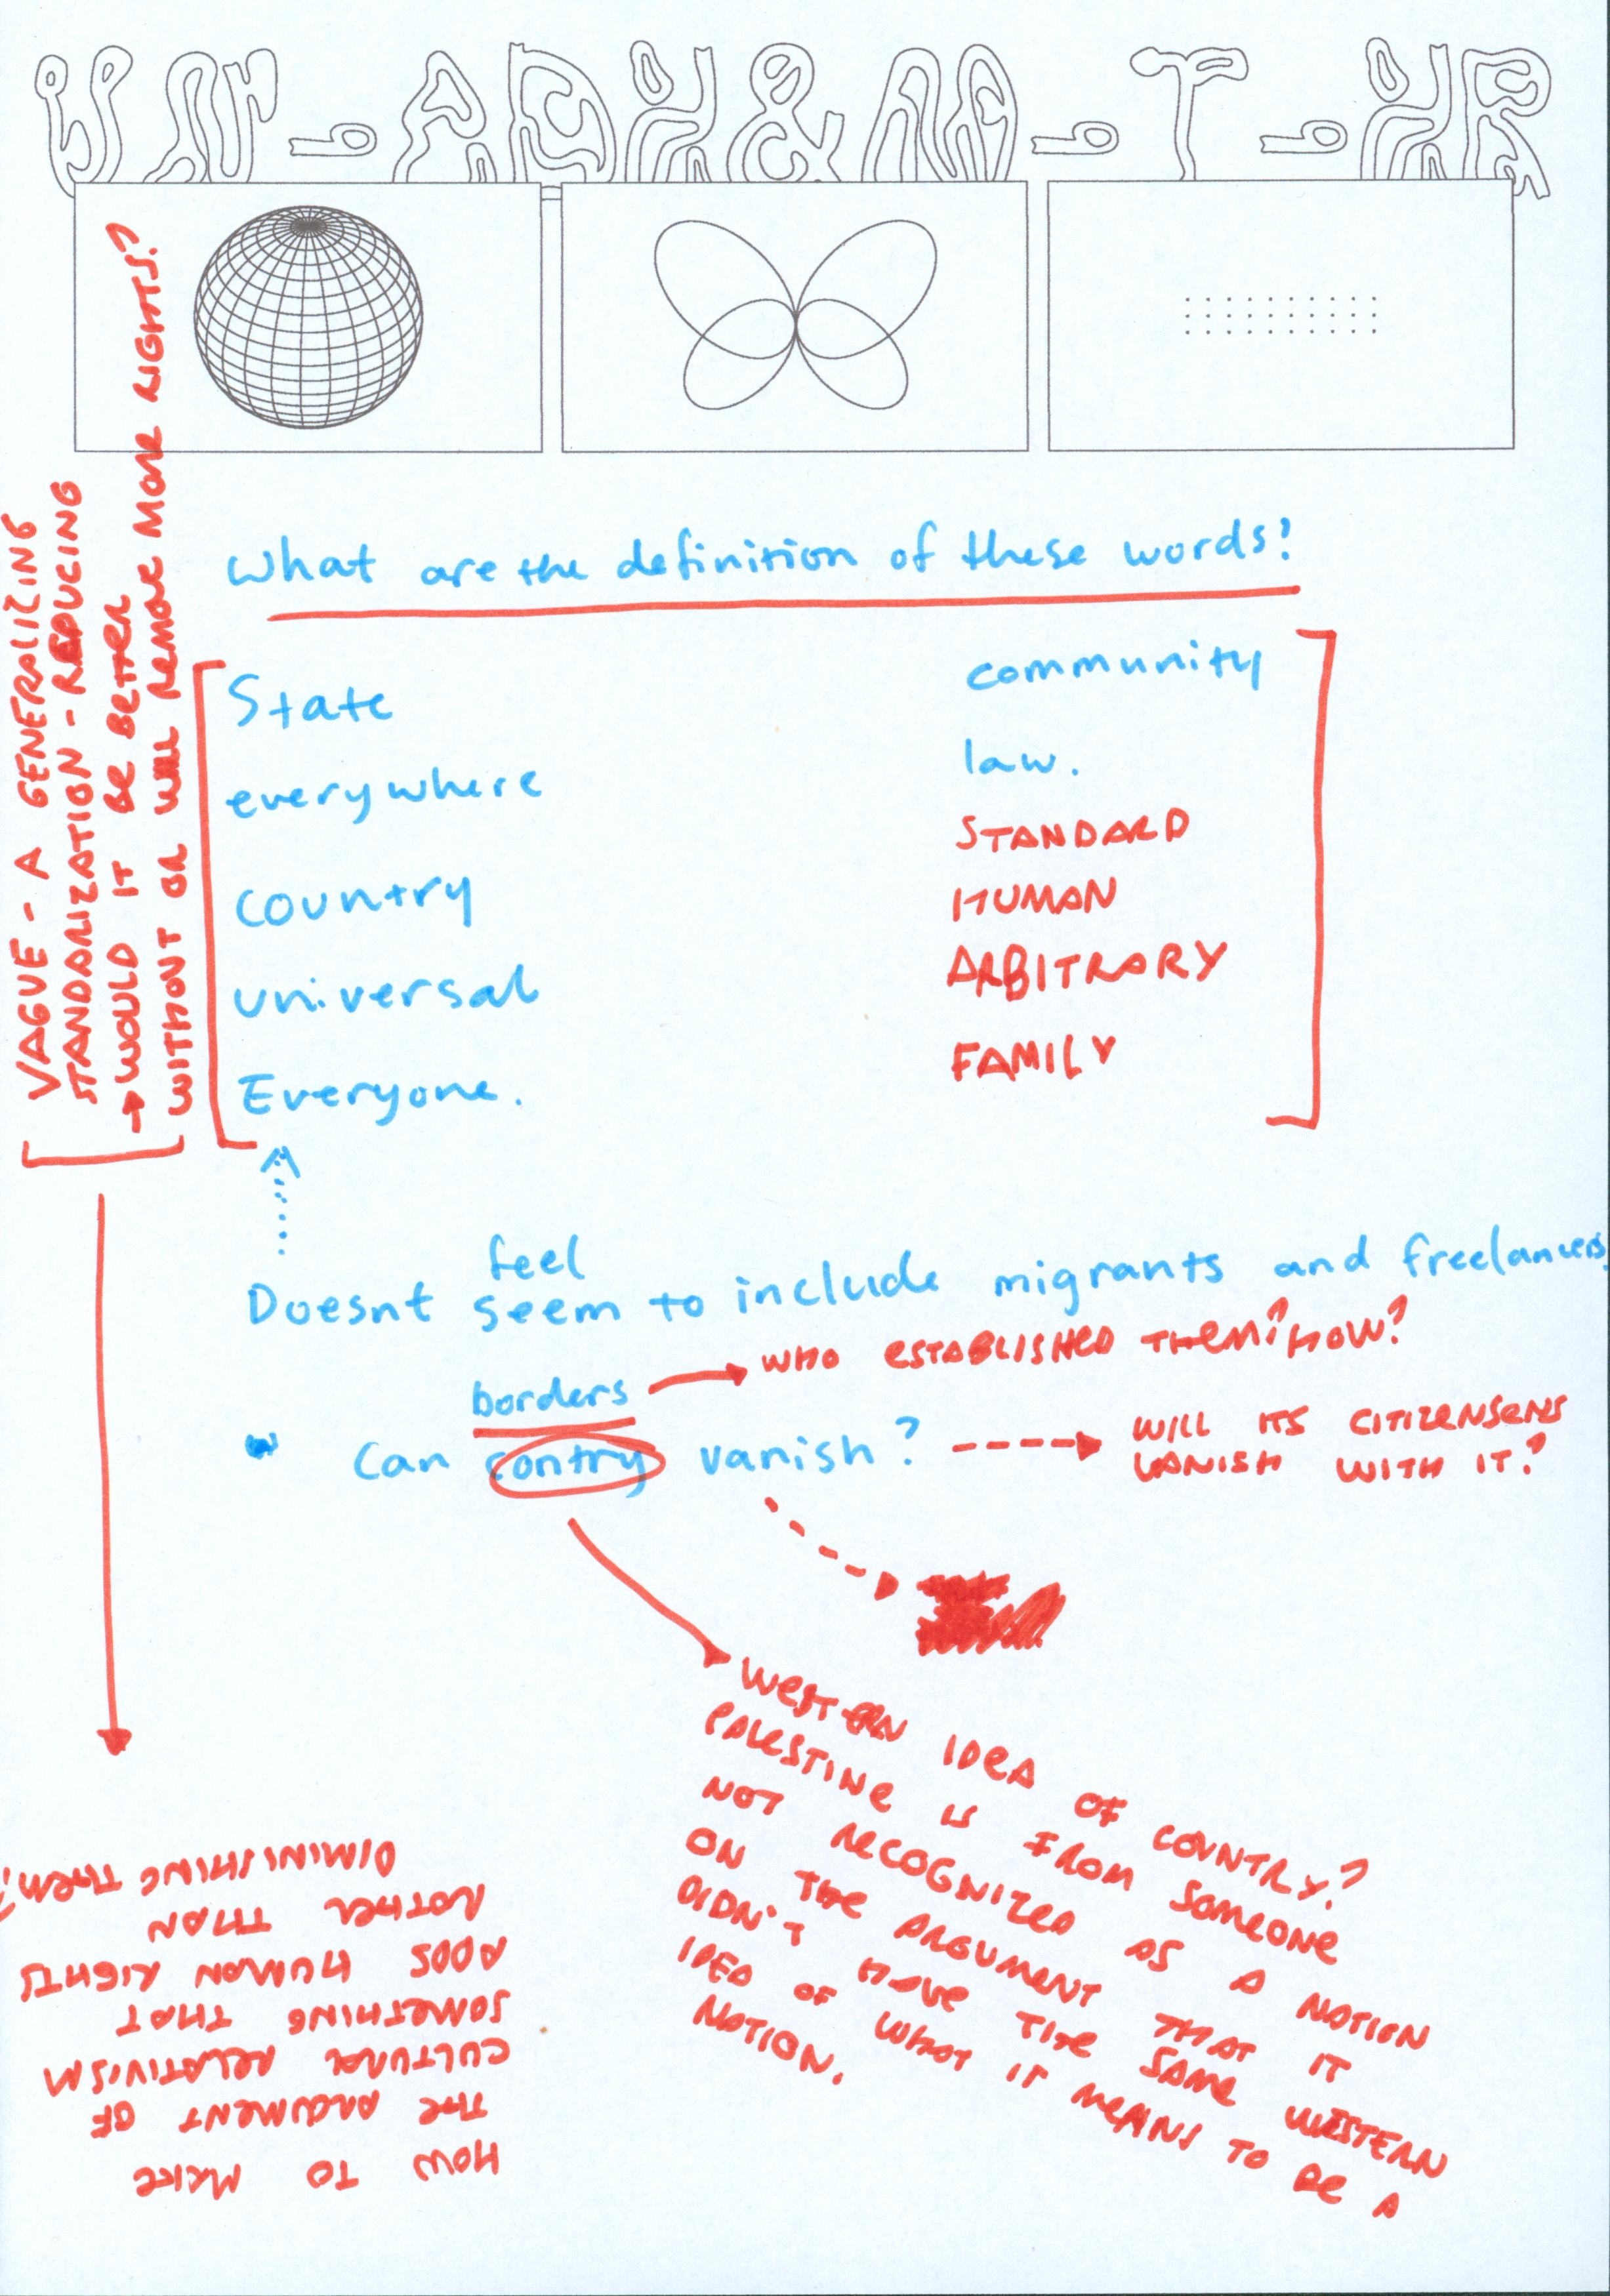 UN-ADH&M-T-HR
What are the definition of these words?
State
everywhere
country
universal
Everyone.
community
law.
STANDARD
HUMAN
ARBITRARY
FAMILY
VAGUE - A GENEROLIZING
STANDARIZATION - REDUCING
→ WOULD IT BE BETTER
WITHOUT OR WILL REMOVE MORE RIGHTS?
feel
Doesnt seem to include migrants and freelancers
borders → WHO ESTABLISHED THEM? HOW?
Can contry vanish? → WILL ITS CITIZENSENS
VANISH WITH IT?
WESTERN IDEA OF COUNTRY?
PALESTINE IS FROM SOMEONE
NOT RECOGNIZED AS A NOTION
ON THE ARGUMENT THAT IT
DIDN'T HAVE THE SAME WESTERN
IDEA OF WHAT IT MEANS TO BE A
NOTION.
HOW TO MAKE
THE ARGUMENT OF
CULTURAL RELATIVISM
SOMETHING THAT
ADDS HUMAN RIGHTS
ROTHER THAN
DIMINISHING THEM?